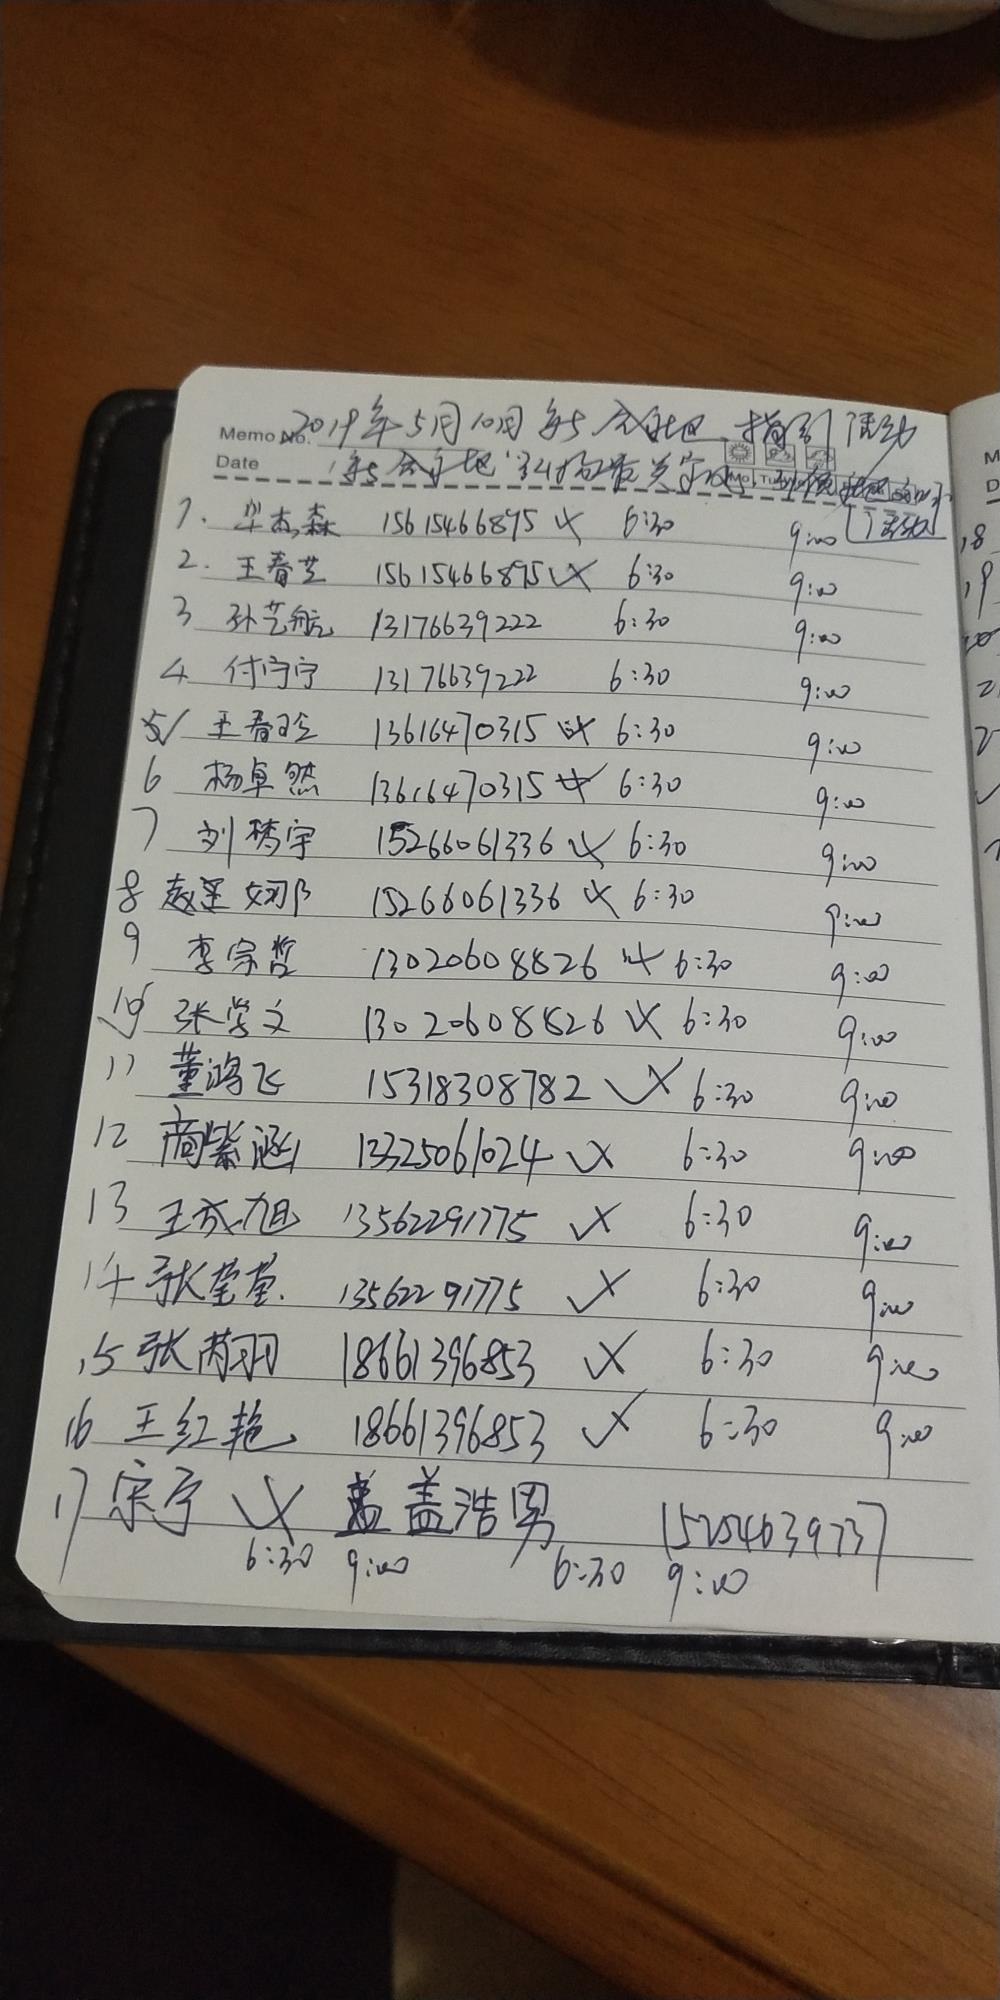 Memo No. 2019年5月10日 指引 活动
Date
1. 毕杰森 15615466895 6:30 9:00 活动
2. 王春芝 15615466895 6:30 9:00
3 孙艺航 13176639222 6:30 9:00
4 付宁宁 13176639222 6:30 9:00
5 王春玲 13616470315 6:30 9:00
6 杨卓然 13616470315 6:30 9:00
7 刘 宇 15266061336 6:30 9:00
8 15266061336 6:30 9:00
9 李宗哲 13020608826 6:30 9:00
10 张学文 13020608826 6:30 9:00
11 董鸿飞 15318308782 6:30 9:00
12 商紫涵 13325061024 6:30 9:00
13 王成旭 13562291775 6:30 9:00
14 张莹莹 13562291775 6:30 9:00
15 张芮羽 18661396853 6:30 9:00
16 王红艳 18661396853 6:30 9:00
17 宗宁 盖浩男 15254639737
6:30 9:00 6:30 9:00
M
D
18
19
20